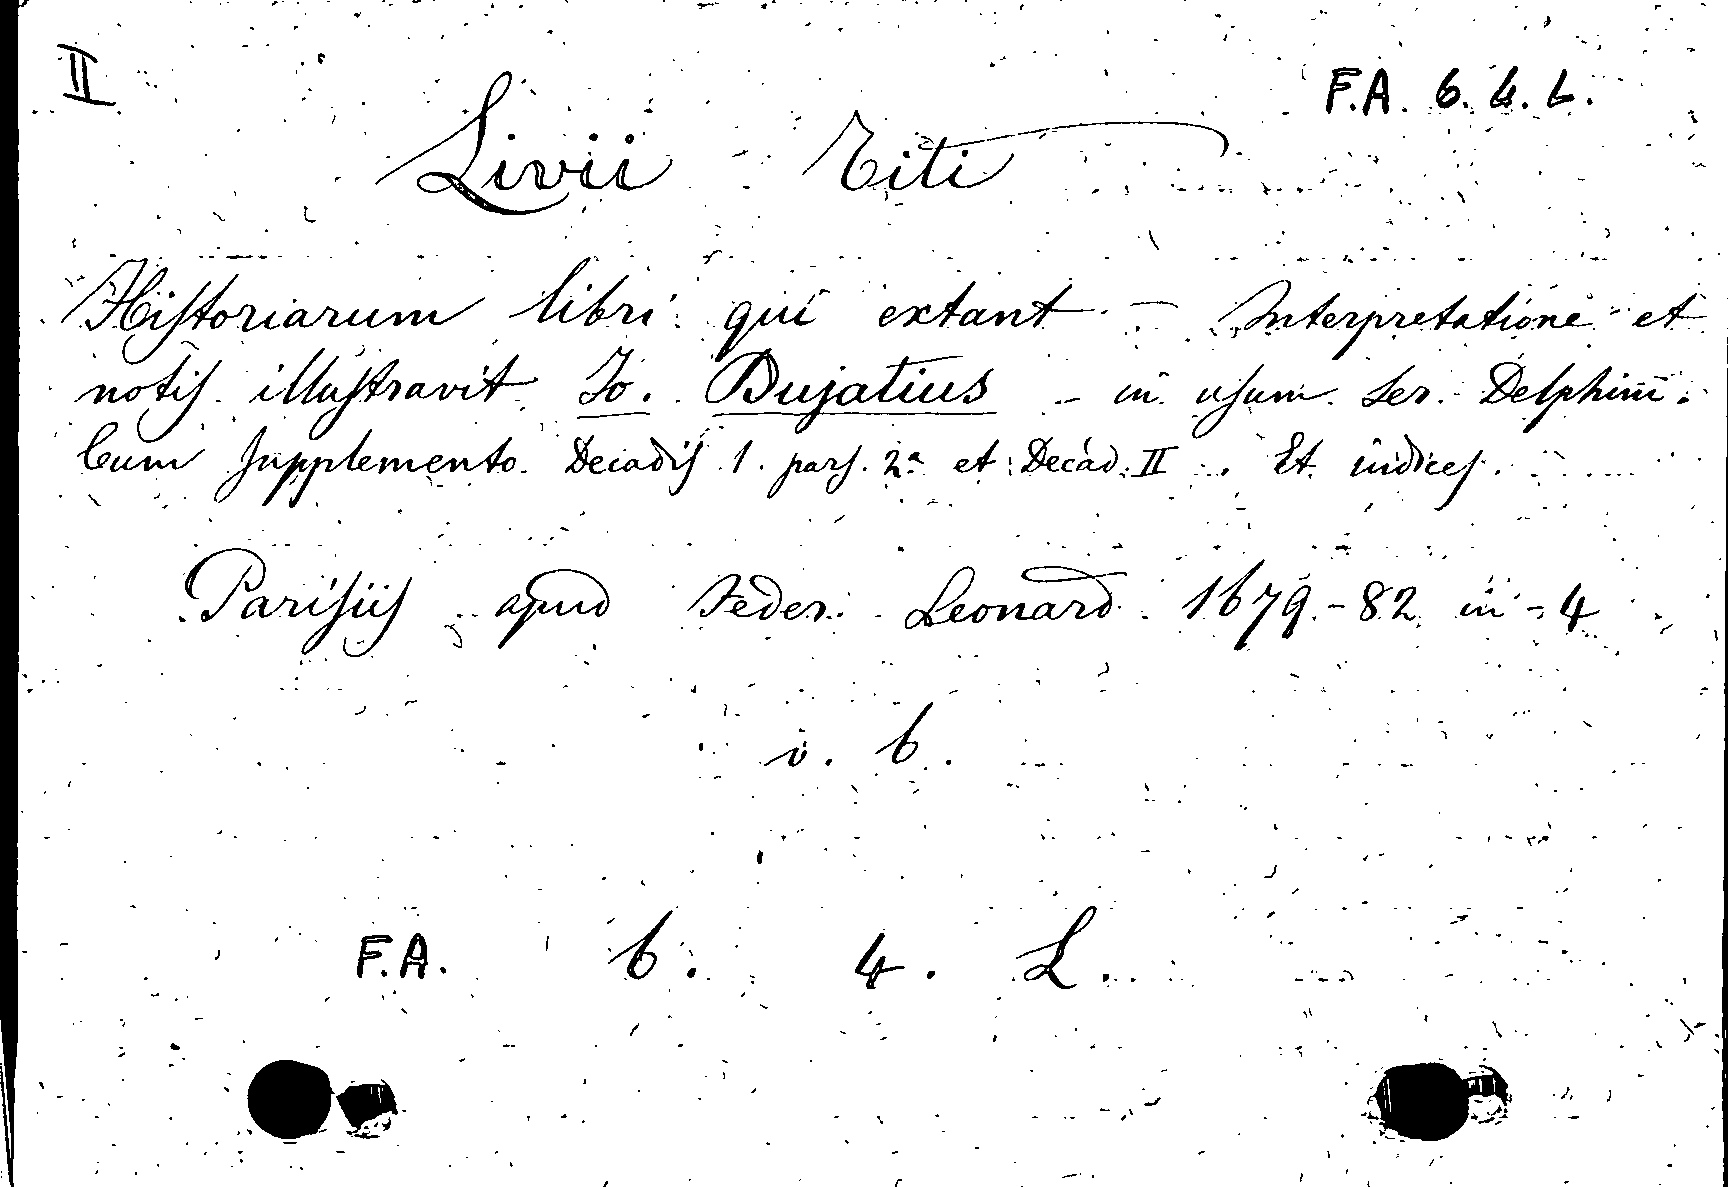 II
F.A. 6. 4. L.
Livii Titi
Historiarum libri qui extant — Interpretatione et
notis illustravit Io. Dujatius - in usum Ser. Delphini.
Cum supplemento Decadis 1. pars. 2a et Decad. II. Et indices.
Parisiis apud Feder. Leonard 1679-82 in-4
v. 6.
F.A. 6. 4. L.